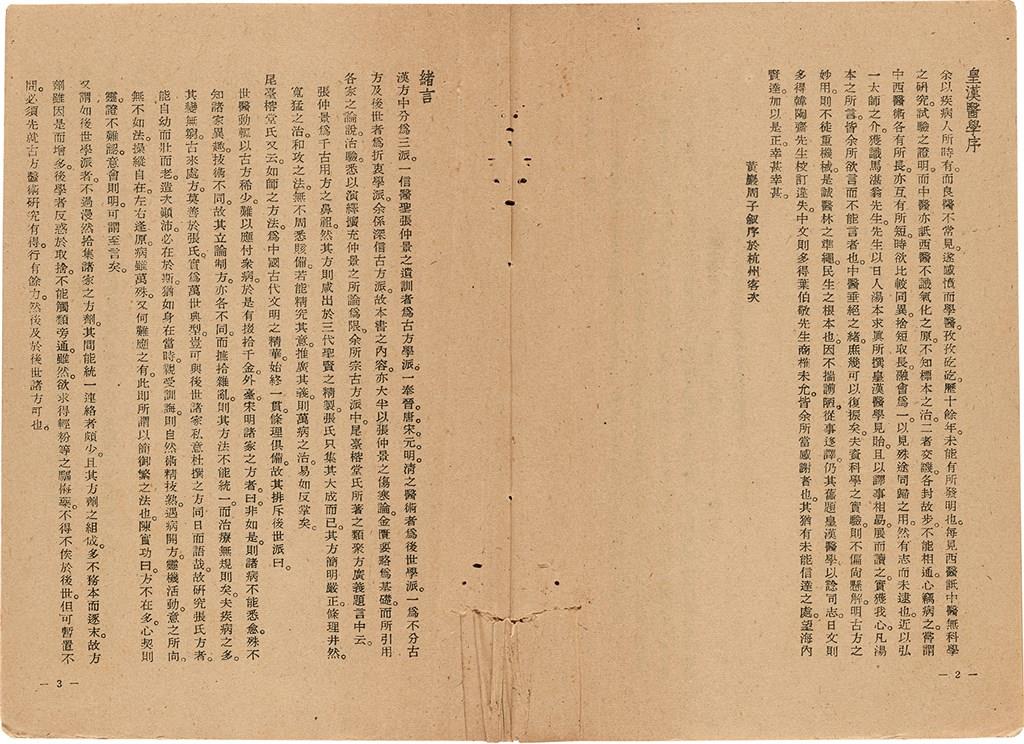 皇漢醫學序
余以疾病人所時有。而良醫不常見。遂感憤而學醫。孜孜矻矻。歷十餘年。未能有所發明也。每見西醫詆中醫無科學
之研究。試驗之證明。而中醫亦詆西醫不識氣化之原。不知標本之治。二者交譏。各封故步。不能相通。心竊病之。嘗謂
中西醫術各有所長。亦互有所短。時欲比較同異。捨短取長。融會爲一。以見殊途同歸之用。然有志而未逮也。近以弘
一大師之介。獲識馬湛翁先生。先生以日人湯本求眞所撰皇漢醫學見貽。且以譯事相勗。展而讀之。實獲我心。凡湯
本之所言。皆余所欲言而不能言者也。中醫垂絕之緒。庶幾可以復振矣。夫資科學之實驗。則不偏尚懸解。明古方之
妙用。則不徒重機械。是誠醫林之準繩。民生之根本也。因不揣謭陋。從事迻譯。仍其舊題皇漢醫學。以諗同志。日文則
多得韓陶齋先生校訂違失。中文則多得葉伯敬先生商榷未允。皆余所當感謝者也。其猶有未能信達之處。望海內
賢達。加以是正。幸甚幸甚。
黃巖周子敍序於杭州客次
— 2 —
緒言
漢方中分爲三派。一信醫聖張仲景之遺訓者。爲古方學派。一奉晉唐宋元明清之醫術者。爲後世學派。一爲不分古
方及後世者。爲折衷學派。余係深信古方派。故本書之內容。亦大半以張仲景之傷寒論金匱要略爲基礎。而所引用
各家之論說治驗。悉以演繹擴充仲景之所論爲限。余所宗古方派中。尾臺榕堂氏所著之類聚方廣義題言中云。
張仲景爲千古用方之鼻祖。然其方則咸出於三代聖賢之精製。張氏只集其大成而已。其方簡明嚴正。條理井然。
寬猛之治。和攻之法。無不周悉賅備。若能精究其意。推廣其義。則萬病之治。易如反掌矣。
尾臺榕堂氏又云。如師之方法。爲中國古代文明之精華。始終一貫。條理俱備。故其排斥後世派曰。
世醫動輒以古方稀少。難以應付衆病。於是有掇拾千金外臺宋明諸家之方者曰。非如是。則諸病不能悉愈。殊不
知諸家異趣。技術不同。故其立論制方。亦各不同。而摭拾雜亂。則其方法不能統一。而治療無規則矣。夫疾病之多。
其變無窮。古來處方。莫善於張氏。實爲萬世典型。豈可與後世諸家私意杜撰之方。同日而語哉。故研究張氏方者。
能自幼而壯而老。造次顚沛。必在於斯。猶如身在當時。親受訓誨。則自然術精技熟。遇病開方。靈機活動。意之所向。
無不如法。操縱自在。左右逢原。病雖萬殊。又何難應之有。此即所謂以簡御繁之法也。陳實功曰。方不在多。心契則
靈。證不難認。意會則明。可謂至言矣。
又謂如後世學派者。不過漫然拾集諸家之方劑。其間能統一連絡者頗少。且其方劑之組成。多不務本而逐末。故方
劑雖因是而增多。後學者反惑於取捨。不能觸類旁通。雖然。欲求得輕粉等之驅梅藥。不得不俟於後世。但可暫置不
問。必須先就古方醫術。研究有得。行有餘力。然後及於後世諸方可也。
— 3 —